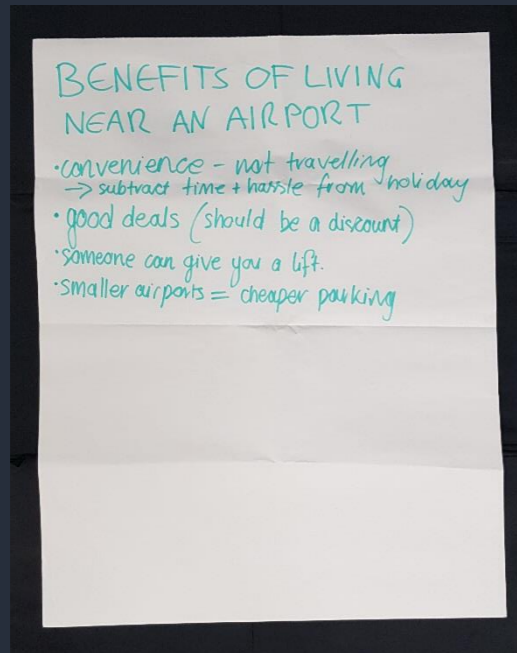 BENEFITS OF LIVING
NEAR AN AIRPORT
·convenience - not travelling
→ subtract time + hassle from holiday
·good deals (should be a discount)
·someone can give you a lift.
·smaller airports = cheaper parking